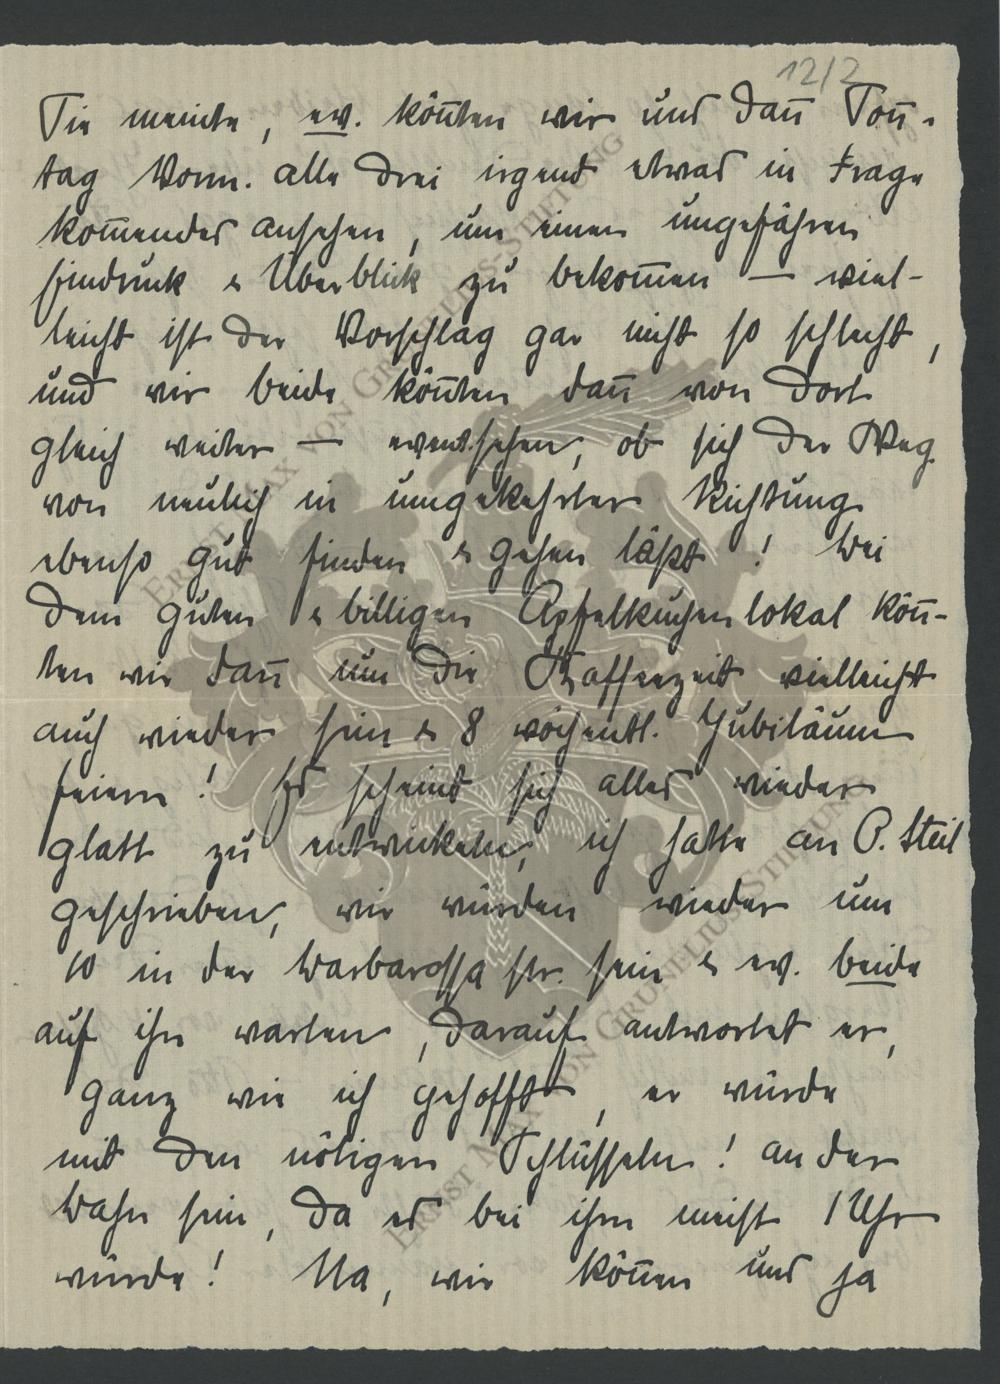 12/2
Sie meinte, ev. könnten wir uns dann Sonn-
tag Vorm. alle drei irgend etwas in Frage
kommendes ansehen, um einen ungefähren
Eindruck & Überblick zu bekommen — viel-
leicht ist der Vorschlag gar nicht so schlecht,
und wir beide könnten dann von dort
gleich weiter — event. sehen, ob sich der Weg
von neulich in umgekehrter Richtung
ebenso gut finden & gehen läßt! Bei
dem guten & billigen Apfelkuchenlokal könn-
ten wir dann um die Kaffeezeit vielleicht
auch wieder sein & 8 wöchentl. Jubiläum
feiern! Es scheint sich alles wieder
glatt zu entwickeln, ich hatte an P. Steil
geschrieben, wir würden wieder um
10 in der Barbarossastr. sein & ev. beide
auf ihn warten, darauf antwortet er,
ganz wie ich gehofft, er würde
mit den nötigen Schlüsseln! an der
Bahn sein, da es bei ihm meist 1 Uhr
würde! Na, wir können uns ja
ERNST MAX VON GRUNELIUS-STIFTUNG
ERNST MAX VON GRUNELIUS-STIFTUNG